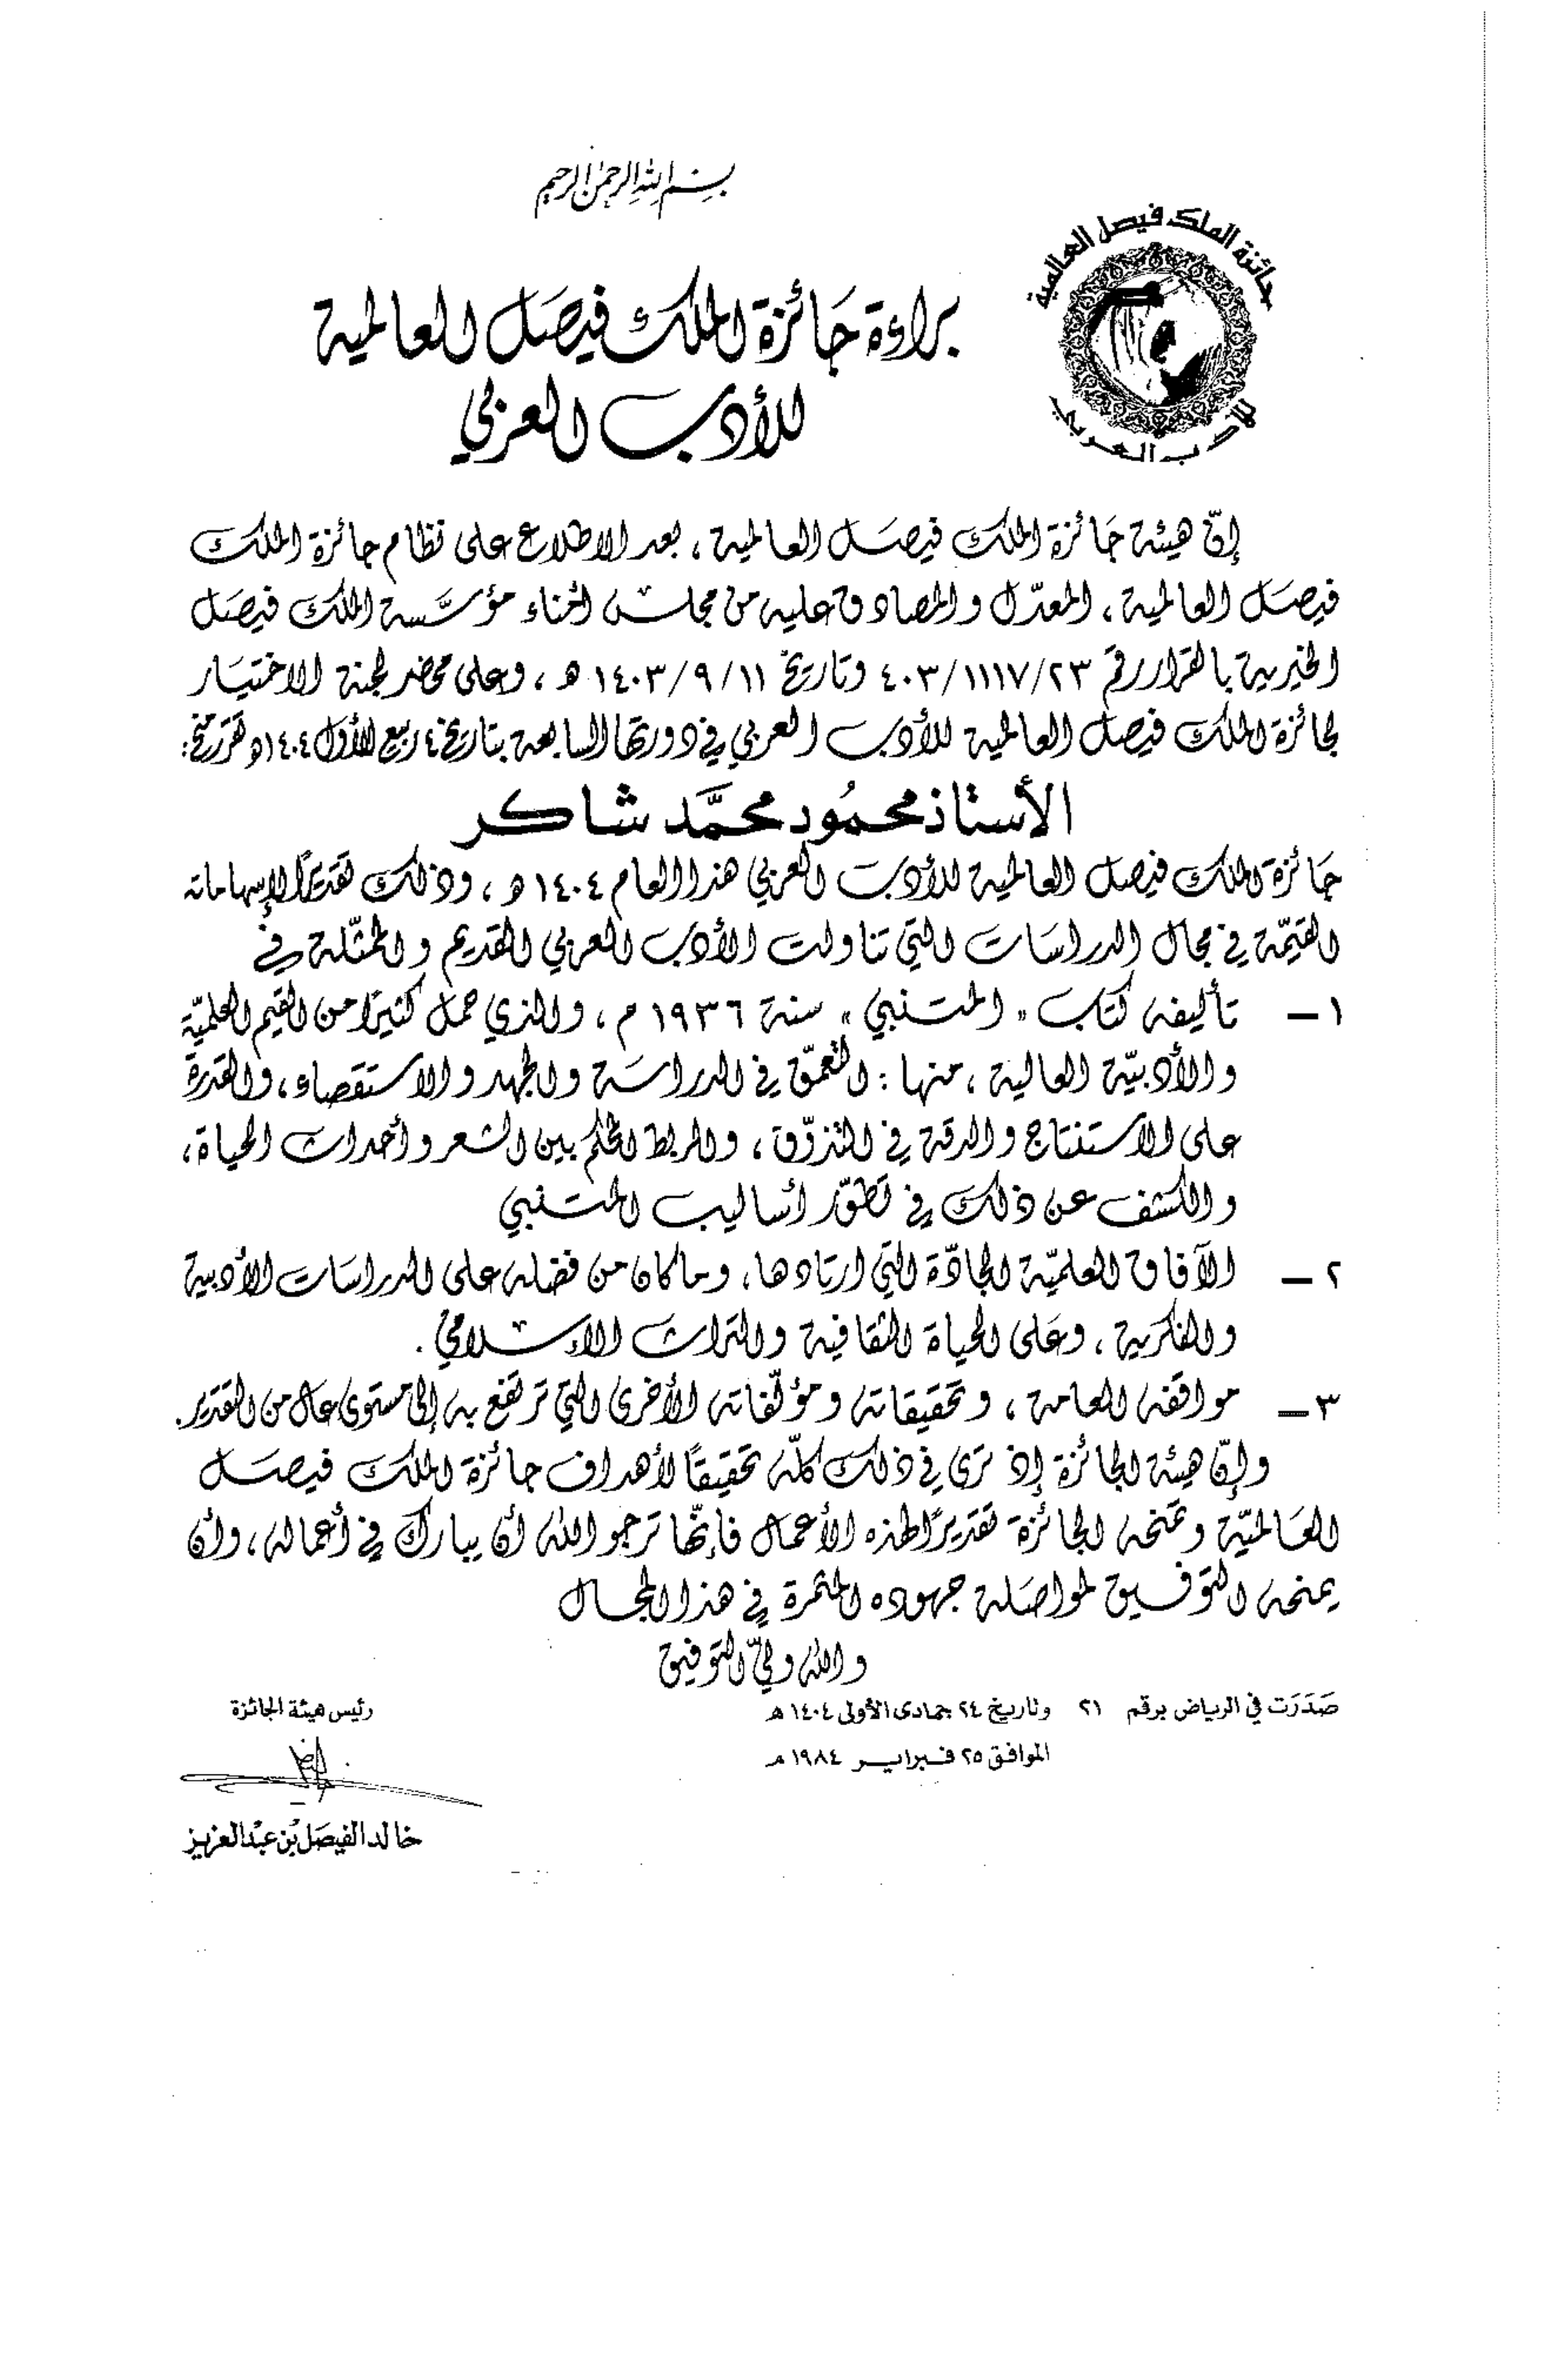 بسم الله الرحمن الرحيم
جائزة الملك فيصل العالمية
للأدب العربي
براءة جَائزة الملك فيصَل العالمية
للأدب العزبي
إنّ هيئة جَائزة الملك فيصَل العالمية ، بعد الاطلاع على نظام جائزة الملك
فيصَل العالمية ، المعدّل والمصادق عليه من مجلس أمناء مؤسَّسة الملك فيصَل
الخيرية بالقرار رقم ٤٠٣/١١١٧/٢٣ وتاريخ ١٤٠٣/٩/١١ هـ ، وعلى محضر لجنة الاختيَار
لجائزة الملك فيصل العالمية للأدب العربي في دورتها السابعة بتاريخ ٤ ربيع الأول ١٤٠٤هـ تقرّر منح :
الأستاذ محمُود محمَّد شاكر
جَائزة الملك فيصل العالمية للأدب العربي هذا العام ١٤٠٤ هـ ، وذلك تقديرًا لإسهاماته
القيّمة في مجال الدراسَات التي تناولت الأدب العربي القديم والممثّلة في
١ – تأليفه كتاب " المتنبي " سنة ١٩٣٦ م ، والذي حمل كثيرًا من القيم العلميّة
والأدبيّة العالية ، منها : التعمّق في الدراسَة والجهد والاستقصاء ، والقدرة
على الاستنتاج والدقة في التذوّق ، والربط المحكم بين الشعر وأحداث الحياة ،
والكشف عن ذلك في تطوّر أساليب المتنبي
٢ – الآفاق العلميّة الجادّة التي ارتادها ، وما كان من فضله على الدراسَات الأدبية
والفكرية ، وعَلى الحياة الثقافية والتراث الإسلامي .
٣ – مواقفه العامة ، وتحقيقاته ومؤلّفاته الأخرى التي ترتفع به إلى مستوى عال من التقدير .
وإنّ هيئة الجائزة إذ ترى في ذلك كلّه تحقيقًا لأهداف جائزة الملك فيصَل
العَالميّة وتمنحه الجائزة تقديرًا لهذه الأعمال فإنّها ترجو الله أن يبارك في أعماله ، وأن
يمنحه التوفيق لمواصَلة جهوده المثمرة في هذا المجال
والله وليّ التوفيق
صَدَرَت في الرياض برقم ٢١ وتاريخ ٢٤ جمادى الأولى ١٤٠٤ هـ
الموافق ٢٥ فبراير ١٩٨٤ م
رئيس هيئة الجائزة
خالد الفيصَل بْن عبْد العزيز